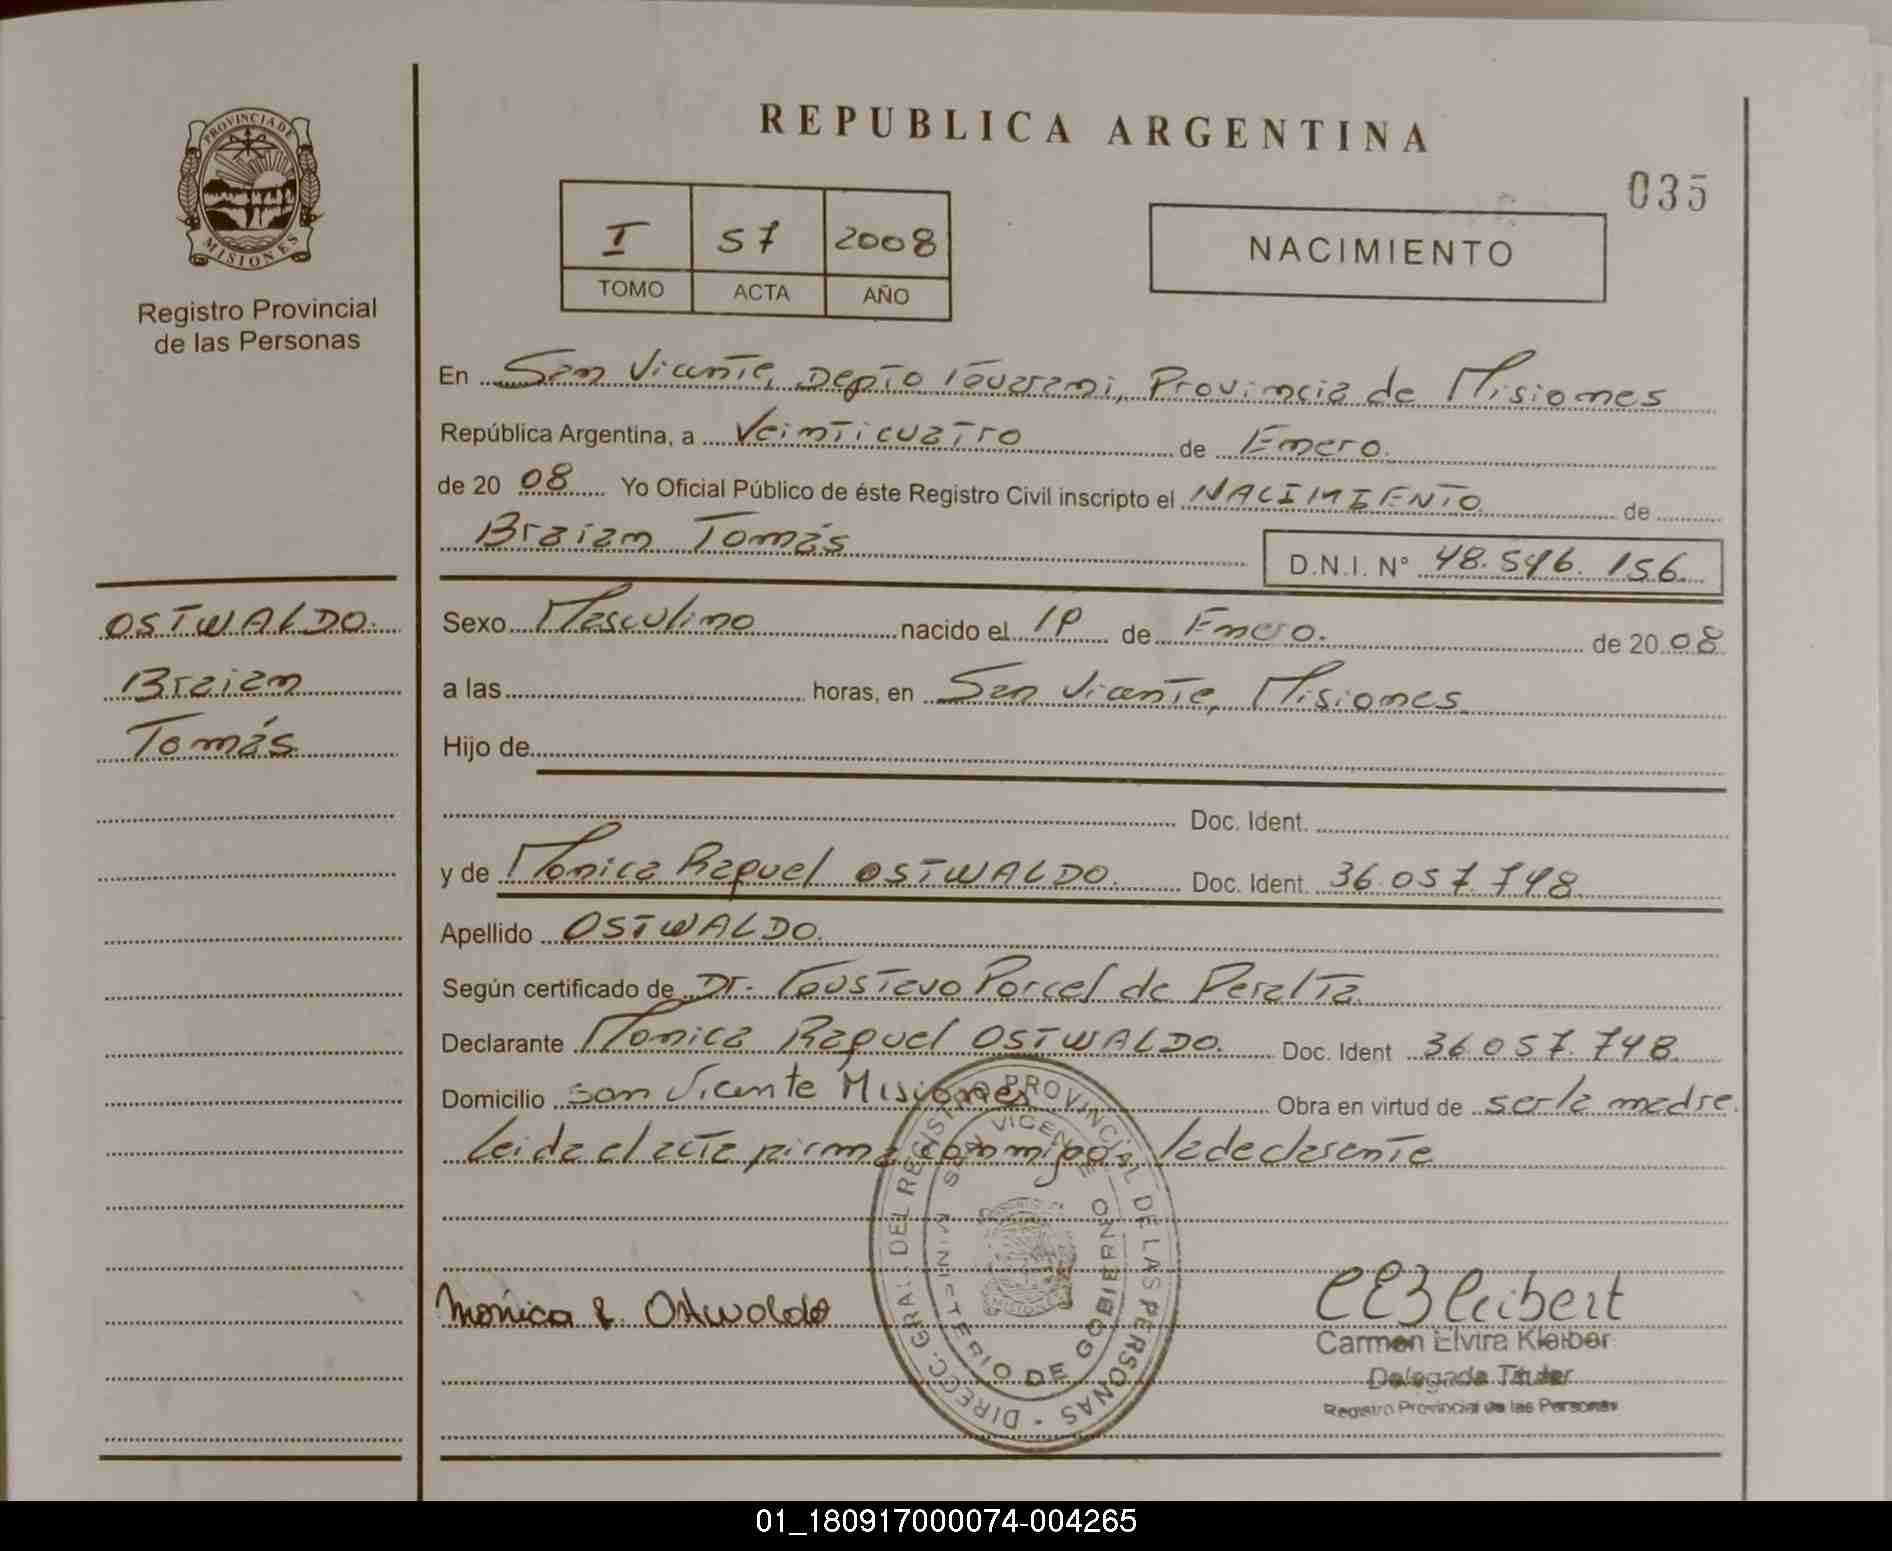 PROVINCIA DE
MISIONES
Registro Provincial
de las Personas
REPUBLICA ARGENTINA
035
I 57 2008
TOMO ACTA AÑO
NACIMIENTO
En San Vicente, Depto Guarani, Provincia de Misiones
República Argentina, a Veinticuatro de Enero.
de 20 08 Yo Oficial Público de éste Registro Civil inscripto el NACIMIENTO de
Braian Tomás
D.N.I. N° 48.546.156
OSTWALDO.
Braian
Tomás
Sexo Masculino nacido el de Enero. de 20 08
a las horas, en San Vicente, Misiones
Hijo de
Doc. Ident.
y de Monica Raquel OSTWALDO. Doc. Ident. 36.057.748
Apellido OSTWALDO.
Según certificado de Dr. Gustavo Porcel de Peralta
Declarante Monica Raquel OSTWALDO. Doc. Ident 36.057.748
Domicilio San Vicente Misiones Obra en virtud de ser la madre.
Leida el acta firma conmigo, la declarante
DIRECC. GRAL. DEL REGISTRO PROVINCIAL DE LAS PERSONAS
SAN VICENTE
MINISTERIO DE GOBIERNO
Monica R. Ostwaldo
Carmen Elvira Kleiber
Delegada Titular
Registro Provincial de las Personas
01_180917000074-004265